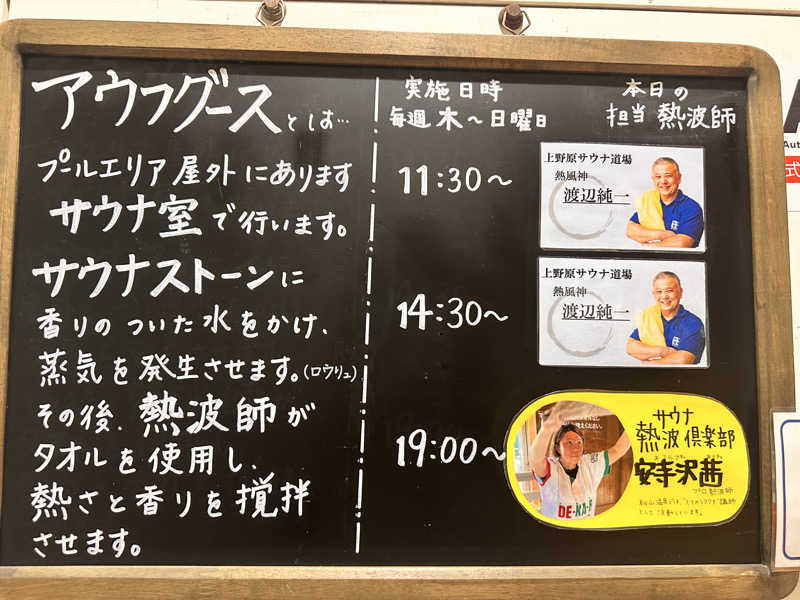 アウフグースとは…
プールエリア屋外にあります
サウナ室で行います。
サウナストーンに
香りのついた水をかけ、
蒸気を発生させます。(ロウリュ)
その後、熱波師が
タオルを使用し、
熱さと香りを撹拌
させます。
実施日時
毎週 木～日曜日
本日の
担当 熱波師
11:30～
上野原サウナ道場
熱風神
渡辺純一
14:30～
上野原サウナ道場
熱風神
渡辺純一
19:00～
サウナ
熱波倶楽部
安寺沢茜
プロ熱波師
DE-KA-
Aut
式